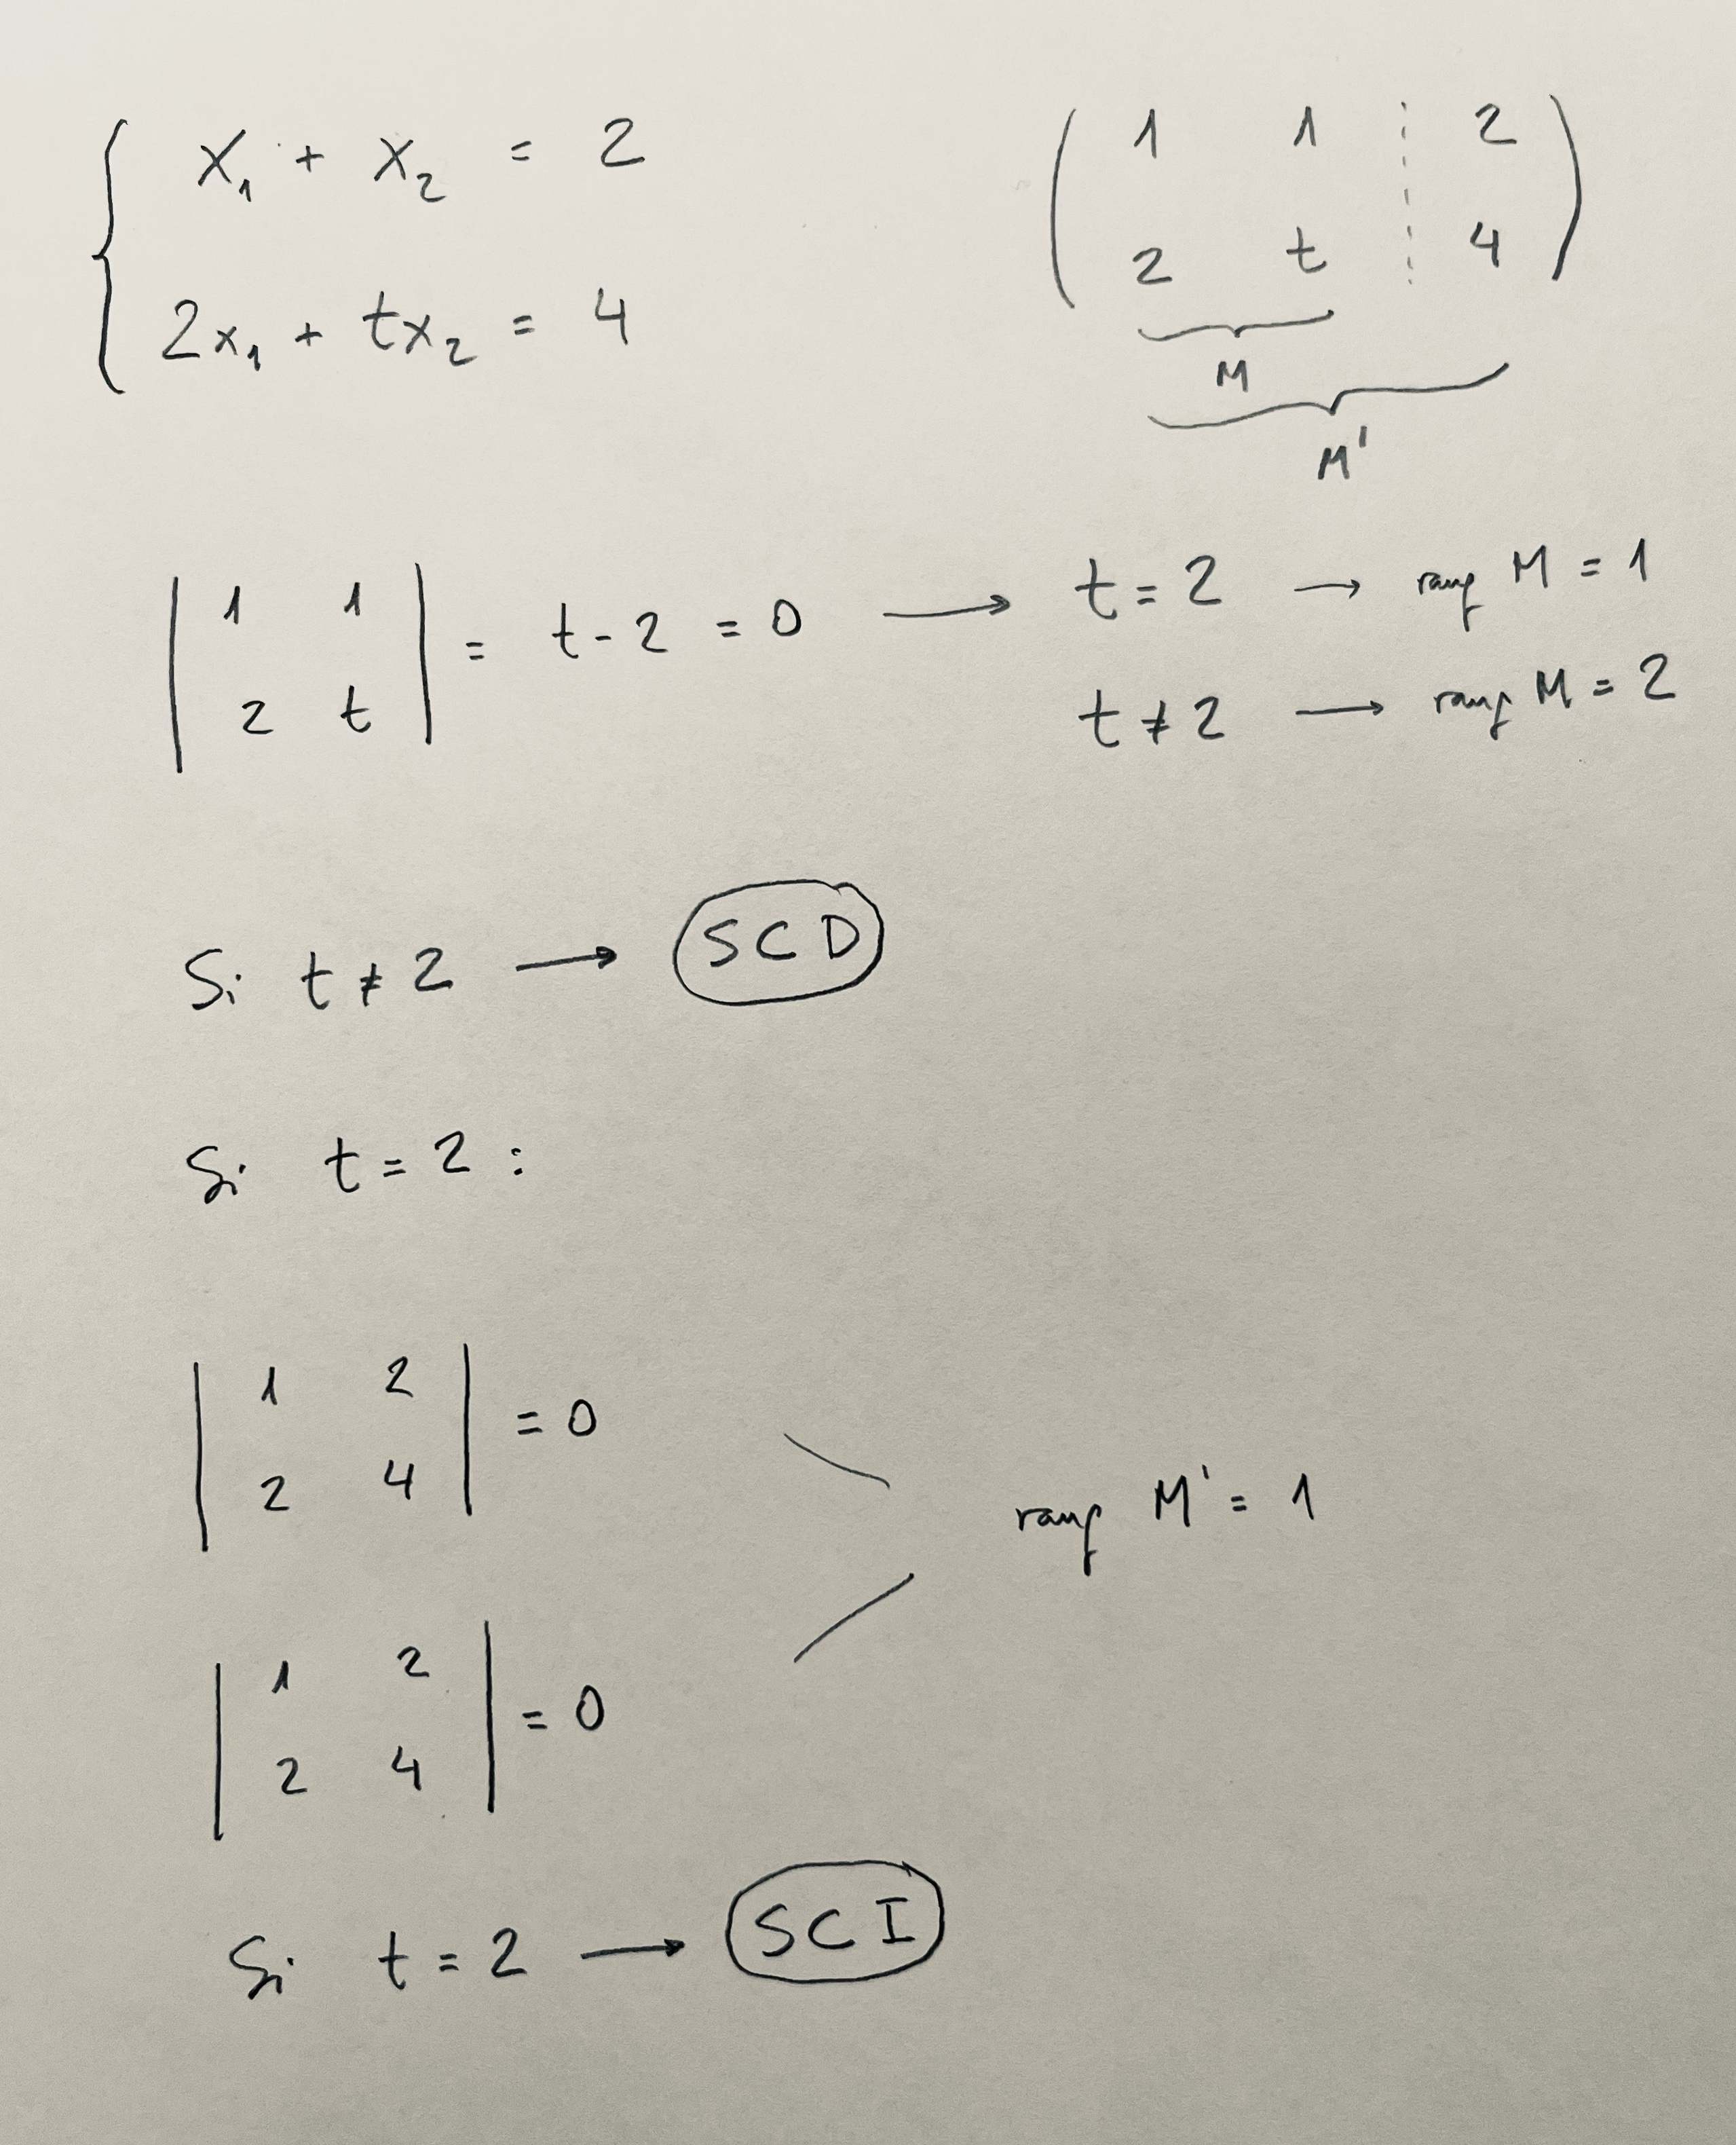 x₁ + x₂ = 2
2x₁ + tx₂ = 4
1 1 2
2 t 4
M
M'
1 1
2 t
= t - 2 = 0 → t = 2 → rang M = 1
t ≠ 2 → rang M = 2
Si t ≠ 2 → SCD
Si t = 2 :
1 2
2 4
= 0
rang M' = 1
1 2
2 4
= 0
Si t = 2 → SCI